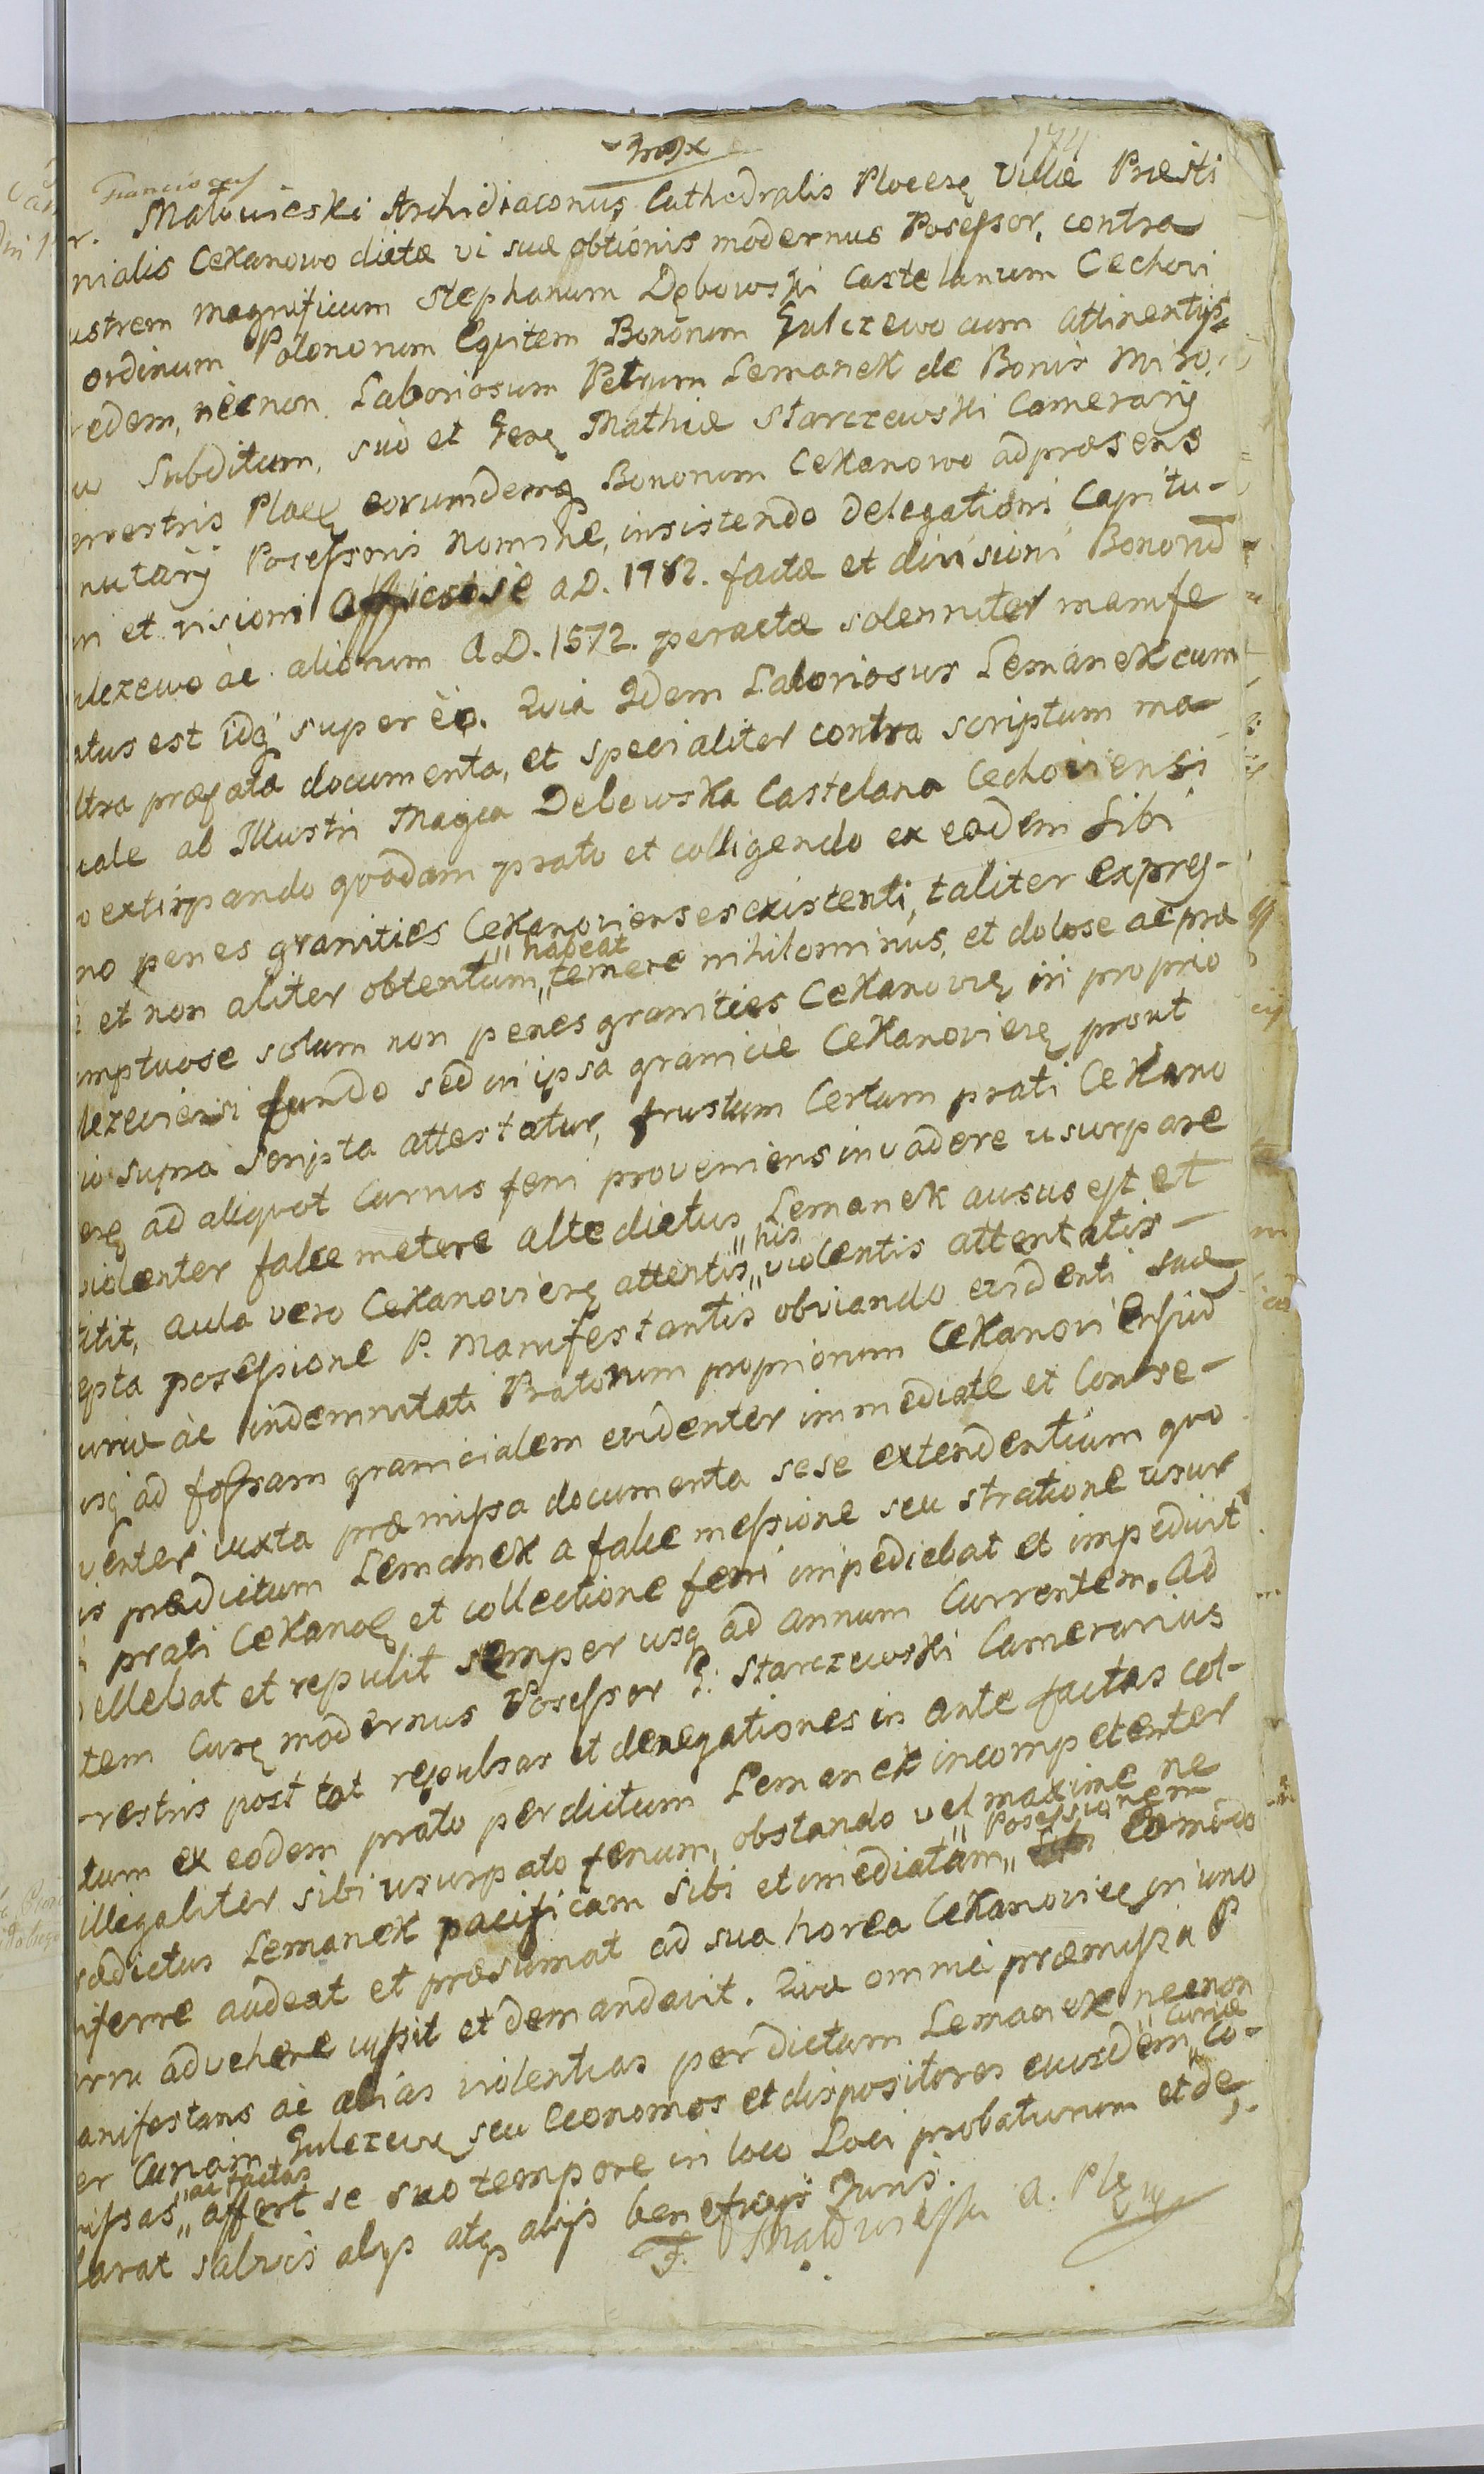 174
Franciscus
r. Matowieski Archidiaconus Cathedralis Plocesę Villæ Præsti
nialis Cekanowo dictæ vi suæ obtionis modernus Posessor, contra
ustrem magnificum Stephanum Dębowski Castelanum Cechovi
ordinum Polonorum Equitem Bonorum Gulczewo cum attinentijs
edem, necnon Laboriosum Petrum Lemanek de Bonis Miro
u Subditum, suo et Gesę Mathiæ Starczewski Camerarij
rrestris Plocę eorumdemq Bonorum Cekanowo ad præsens
nutarij Posessoris nomine, insistendo delegationi Capitu-
ri et visioni Officiosiæ a D. 1782. factæ et divisioni Bonorũ
ulczewo ac aliorum A.D. 1572. peractæ solenniter manife
atus est idq super eo. Quia Idem Laboriosus Lemanek cum
ltra præfata documenta, et specialiter contra scriptum ma-
uale ab Illustri Magca Debowska Castelana Cechoviensi
o extirpando quodam prato et colligendo ex eodem sibi
no penes granities Cekanovienses existenti, taliter expres-
e et non aliter obtentum „ habeat temere nihilominus, et dolose ac præ
umptuose solum non penes granities Cekanovię in proprio
lczeviensi fundo sed in ipsa granicie Cekanovierę prout
io supra scripta attestatur, frustum Certum prati Cekano
erę ad aliquot Currus feni proveniens invadere usurpare
violenter falce metere alte dictus Lemanek ausus est et
titit, aula vero Cekanovierę attentis „ his violentis attentatis-
epta posessione P. Manifestantis obviando evidenti suæ
uriæ ac indemnitati Pratorum propriorum Cekanoviensiũ
usq ad fossam granicialem evidenter immediate et Conse-
venter iuxta præmissa documenta sese extendentium quo
is prædictum Lemanek a falce messione seu stratione usur
i prati Cekanoę et collectione feni impediebat et impedivit
pellebat et repulit semper usq ad annum Currentem. Ad
tem Cusę modernus Posessor G. Starczewski Camerarius
rrestris post tot repulsas et denegationes in ante factas col-
tum ex eodem prato per dictum Lemanek incompetenter
illegaliter sibi usurpato fenum, obstando vel maxime ne
rædictus Lemanek pacificam sibi et imediatam „ Posessionem eo modo
nferre audeat et præsumat ad sua horea Cekanovieę in uno
urru advehere iussit et demandavit. Quæ omnia præmissa P
anifestans ac alias violentias per dictum Lemanek necnon
er Curiam Gulczevę seu Oeconomos et dispositores eiusdem „ Curiæ Co-
missas „ ac factas offert se suo tempore in loco Loci probaturum et de
larat salvis alijs atq alijs beneficijs Juris.
F. Matowieski A. Płę